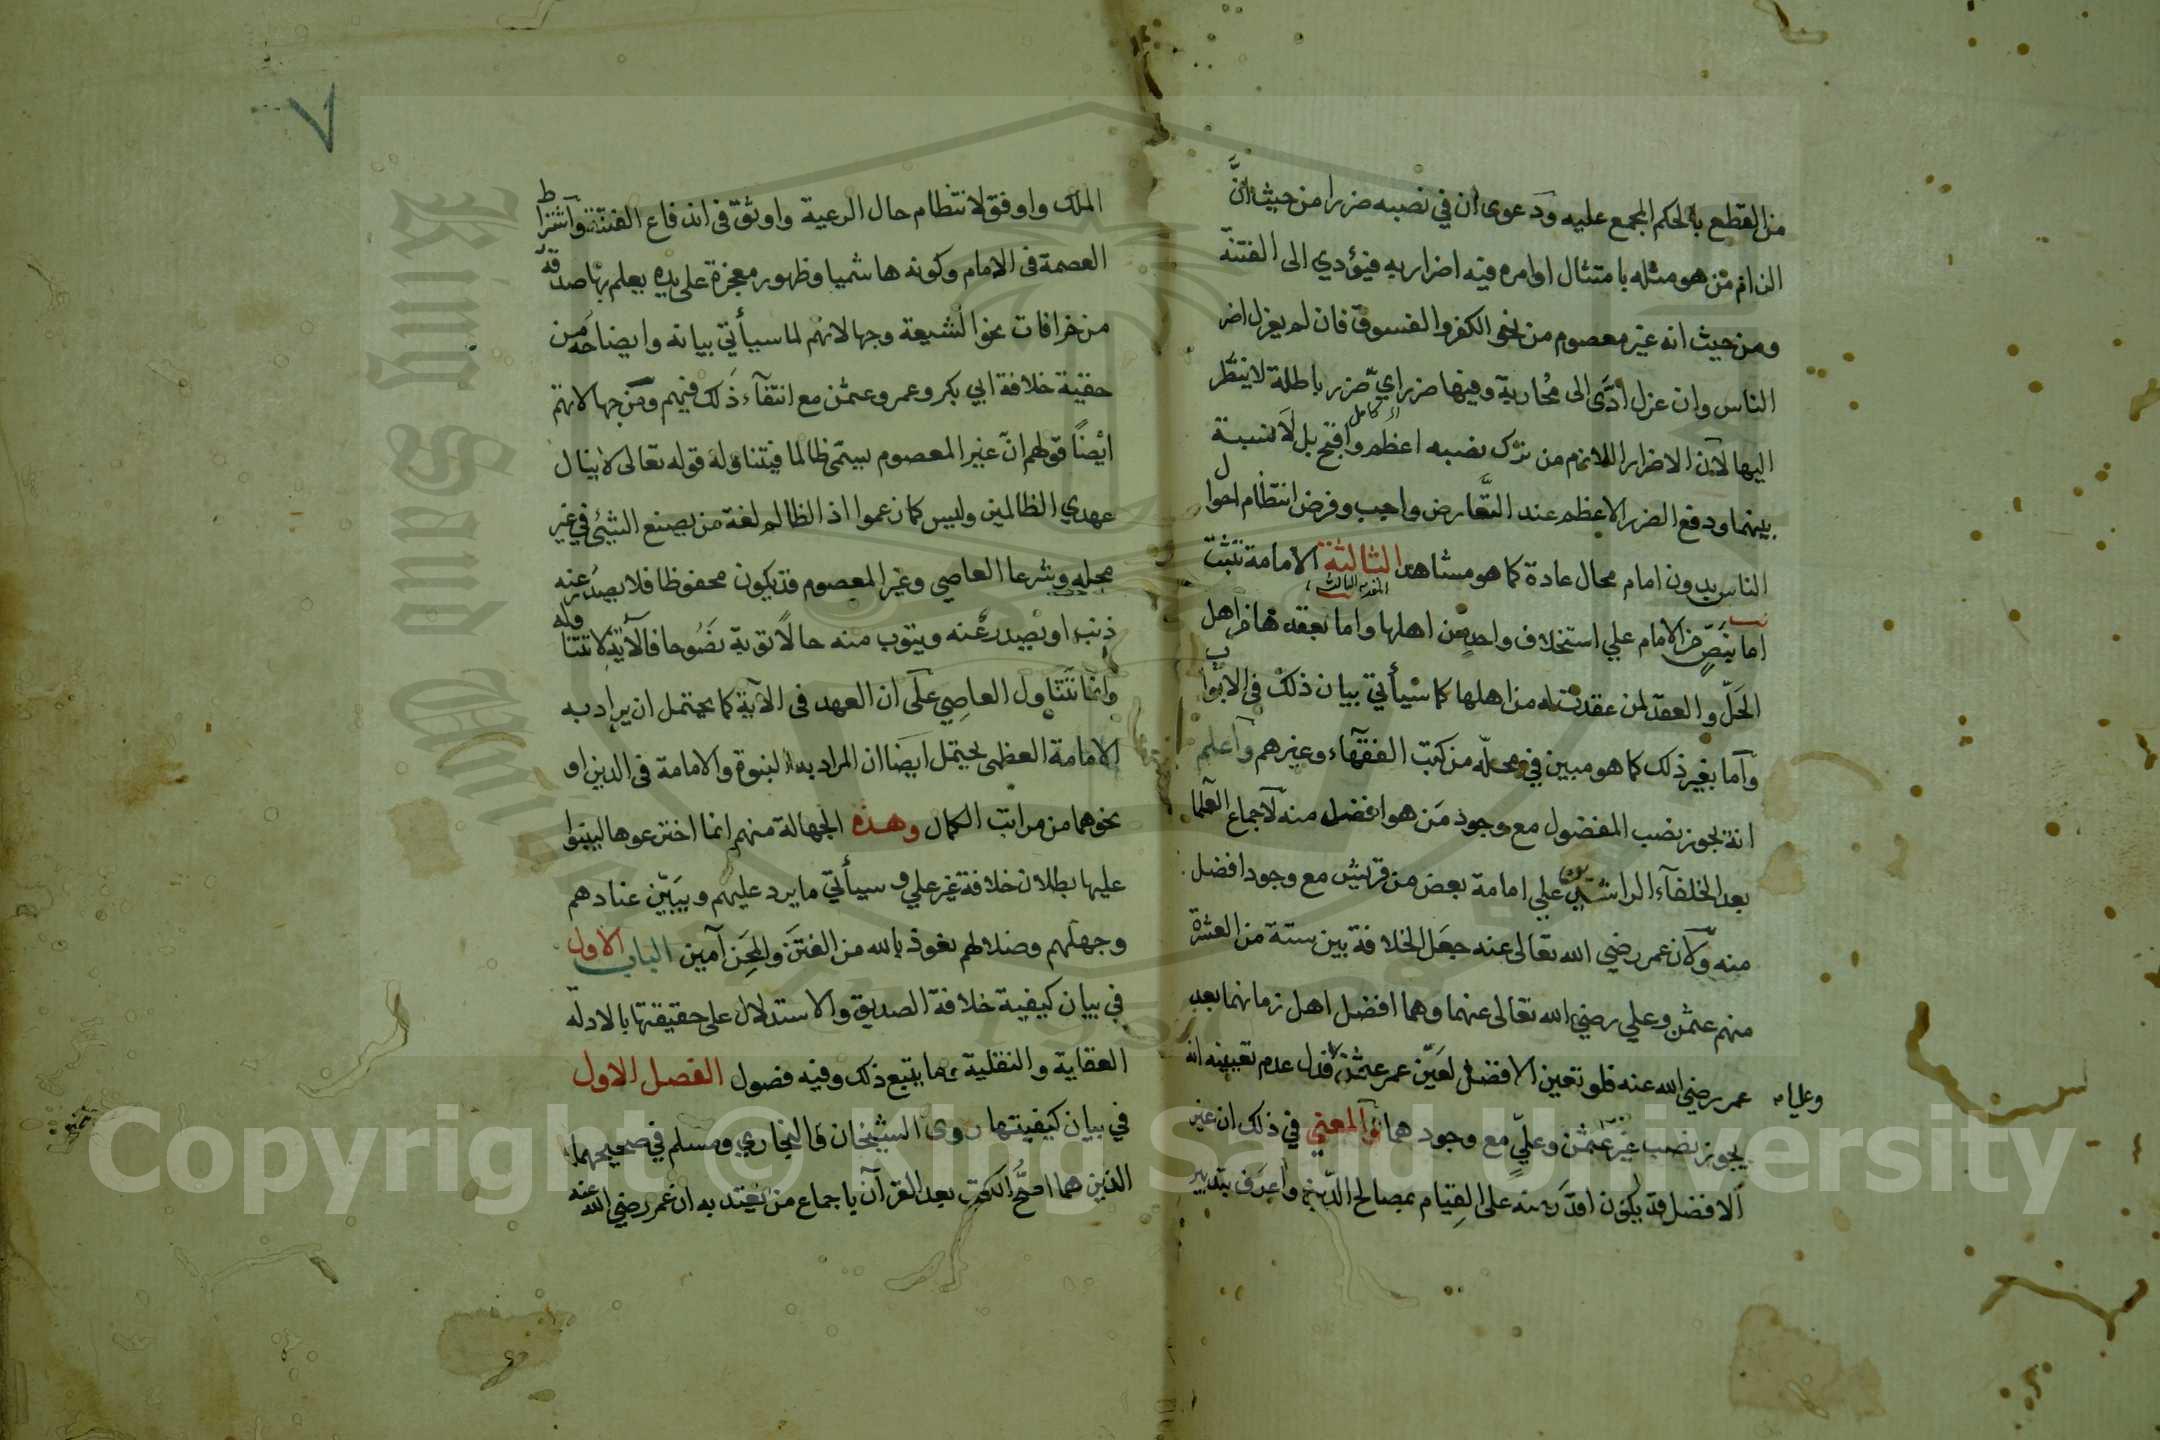 من القطع بالحكم المجمع عليه ودعوى أن في نصبه ضررا من حيث أنَّ
الزام من هو مثله بامتثال اوامره فيه اضرار به فيؤدي الى الفتنة
ومن حيث انه غير معصوم من نحو الكفر والفسوق فان لم يعزل اضر
الناس وان عزل ادَّى الى محاربة وفيها ضرر اي ضرر باطلة لا ينظر
اي كامل
اليها لأن الاضرار اللازم من ترك نصبه اعظم واقبح بل لا نسبة
بينهما ودفع الضرر الاعظم عند التَّعارض واجب وفرض انتظام احوال
الناس بدون امام محال عادة كما هو مشاهد الثالثة الامامة تثبت
المقدمة الثالثة
اما بنص من الامام علي استخلاف واحد من اهلها واما بعقدها من اهل
الحَلّ والعقد لمن عقدت له من اهلها كما سيأتي بيان ذلك في الابواب
وأما بغير ذلك كما هو مبين في محله من كتب الفقهاء وغيرهم وأعلم
انه يجوز نصب المفضول مع وجود مَن هو افضل منه لاجماع العلما
بعد الخلفآء الراشدين علي امامة بعض من قريش مع وجود افضل
منه ولأن عمر رضي الله تعالى عنه جعل الخلافة بين ستة من العشرة
منهم عثمن وعلي رضي الله تعالى عنهما وهما افضل اهل زمانهما بعد
عمر رضي الله عنه فلو تعين الافضل لعَيَّن عمر عثمن فدل عدم تعيينه انه
وعليا
يجوز نصب غير عثمن وعليّ مع وجودهما والمعني في ذلك ان غير
الافضل قد يكون اقدَر منه على القيام بمصالح الدّين واعرَف بتدبير
٧
الملك واوفق لانتظام حال الرعية واوثق في اندفاع الفتنة واشتراط
العصمة في الامام وكونه هاشميا وظهور معجزة على يده يعلم بها صدقه
من خرافات نحو الشيعة وجهالاتهم لما سيأتي بيانه وايضاحه من
حقية خلافة ابي بكر وعمر وعثمن مع انتفآء ذلك فيهم ومن جهالاتهم
ايضًا قولهم انّ غير المعصوم يسمّى ظالما فيتناوله قوله تعالى لا ينال
عهدي الظالمين وليس كما زعموا اذ الظالم لغة من يضع الشيئ في غير
محله وشرعا العاصي وغير المعصوم قد يكون محفوظا فلا يصدُر عنه
ذنب او يصدر عنه ويتوب منه حالًا توبة نصُوحا فالآية لا تتناوله
وانما تتناول العاصِي على ان العهد في الآية كما يحتمل ان يراد به
الامامة العظمى يحتمل ايضًا ان المراد به النبوة والامامة في الدين او
نحوهما من مراتب الكمال وهذه الجهالة منهم انما اخترعوها ليبنوا
عليها بطلان خلافة غير علي و سيأتي ما يرد عليهم ويبَيّن عنادهم
وجهلهم وضلالهم نعوذ بالله من الفتَن والمِحَن آمين الباب الاول
في بيان كيفية خلافة الصديق والاستدلال على حقيقتها بالادلة
العقلية والنقلية وما يتبع ذلك وفيه فصول الفصل الاول
في بيان كيفيتها روى الشيخان البخاري ومسلم في صحيحيهما
الذين هما اصحُّ الكتب بعد القرآن باجماع من يُعتد به ان عمر رضي الله عنه
King Saud University
1957
Copyright © King Saud University